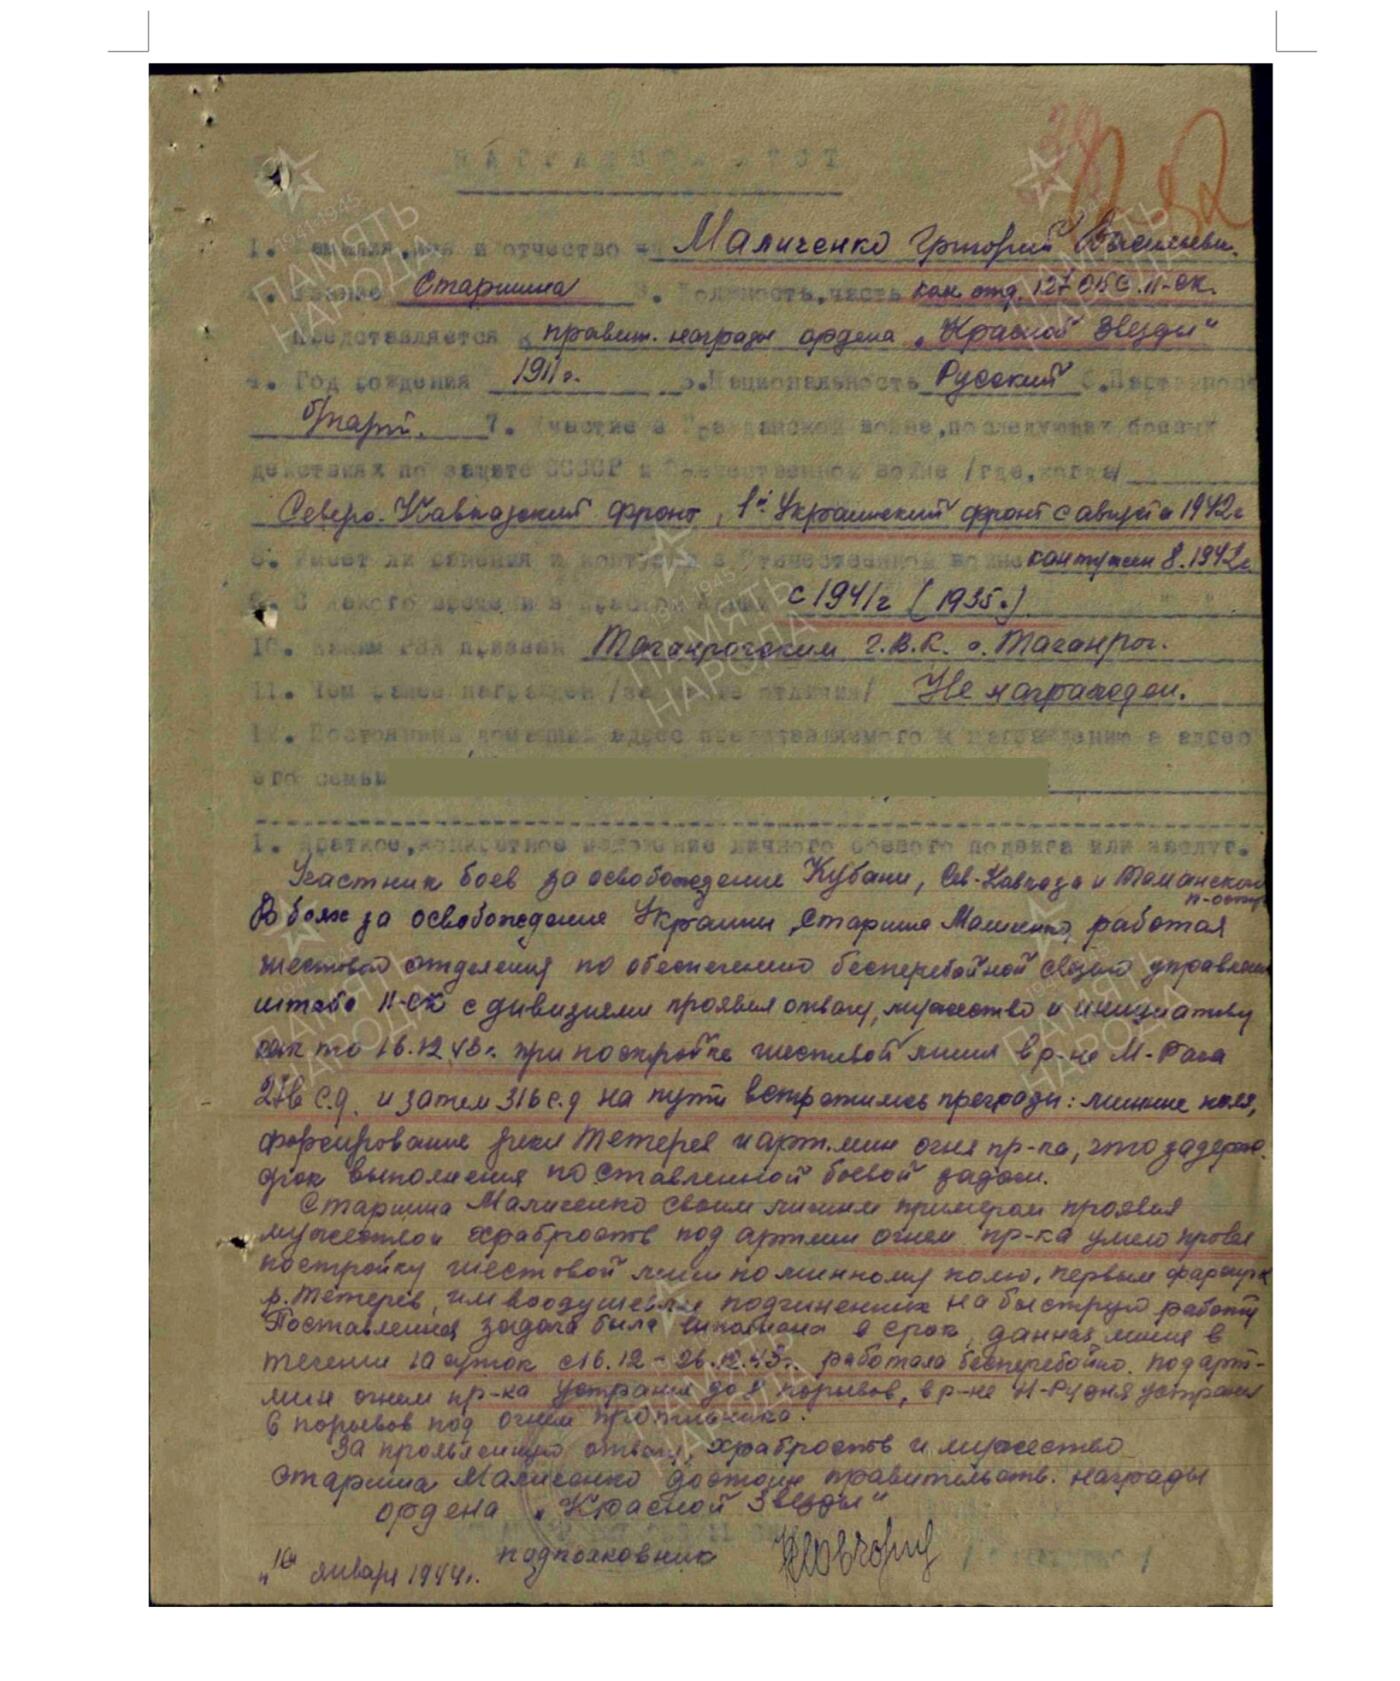 НАГРАДНОЙ ЛИСТ
1. Фамилия, имя и отчество - Маличенко Григорий Васильеви.
2. Звание Старшина 3. Должность, часть ком. отд. 127 ОБС. 11-ск.
Представляется к правит. награде ордена „Красной Звезды"
4. Год рождения 1911 г. 5. Национальность Русский 6. Партийност
б/парт. 7. Участие в Гражданской войне, последующих боевых
действиях по защите СССР и Отечественной войне /где, когда/
Северо-Кавказский фронт, 1й Украинский фронт с августа 1942 г
8. Имеет ли ранения и контузии в Отечественной войне контужен 8.1942 г.
9. С какого времени в Красной Армии с 1941 г (1935 г.)
10. Каким РВК призван Таганрогским Г.В.К. г. Таганрог.
11. Чем ранее награжден /за какие отличия/ Не награжден.
12. Постоянный домашний адрес представляемого к награждению и адрес
его семьи
1. Краткое, конкретное изложение личного боевого подвига или заслуг.
Участник боев за освобождение Кубани, Сев-Кавказа и Таманского
п-остр
В боях за освобождение Украины, старшина Маличенко, работая
шестовой отделения по обеспечению бесперебойной связью управлен
штаба 11-ск с дивизиями проявил отвагу, мужество и инициативу
как то 16.12.43 г. при постройке шестовой линии в р-не М-Рача
276 с.д. и затем 316 с.д на пути встретились преграды: минные поля,
форсирование реки Тетерев и арт. мин огня пр-ка, что задерж.
срок выполнения поставленной боевой задачи.
Старшина Маличенко своим личным примером проявил
мужество и храбрость под артмин огнем пр-ка умело провел
постройку шестовой линии по минному полю, первым форсир
р. Тетерев, им воодушевил подчиненных на быструю работу
Поставленная задача была выполнена в срок, данная линия в
течении 10 суток с 16.12 - 26.12.43 г. работала бесперебойно. под арт-
мин огнем пр-ка устранил до 8 порывов, в р-не Н-Рудня устранил
6 порывов под огнем противника.
За проявленную отвагу, храбрость и мужество
старшина Маличенко достоин правительств. награды
ордена „Красной Звезды"
подполковник
„10" января 1944 г.
1941-1945
ПАМЯТЬ
НАРОДА